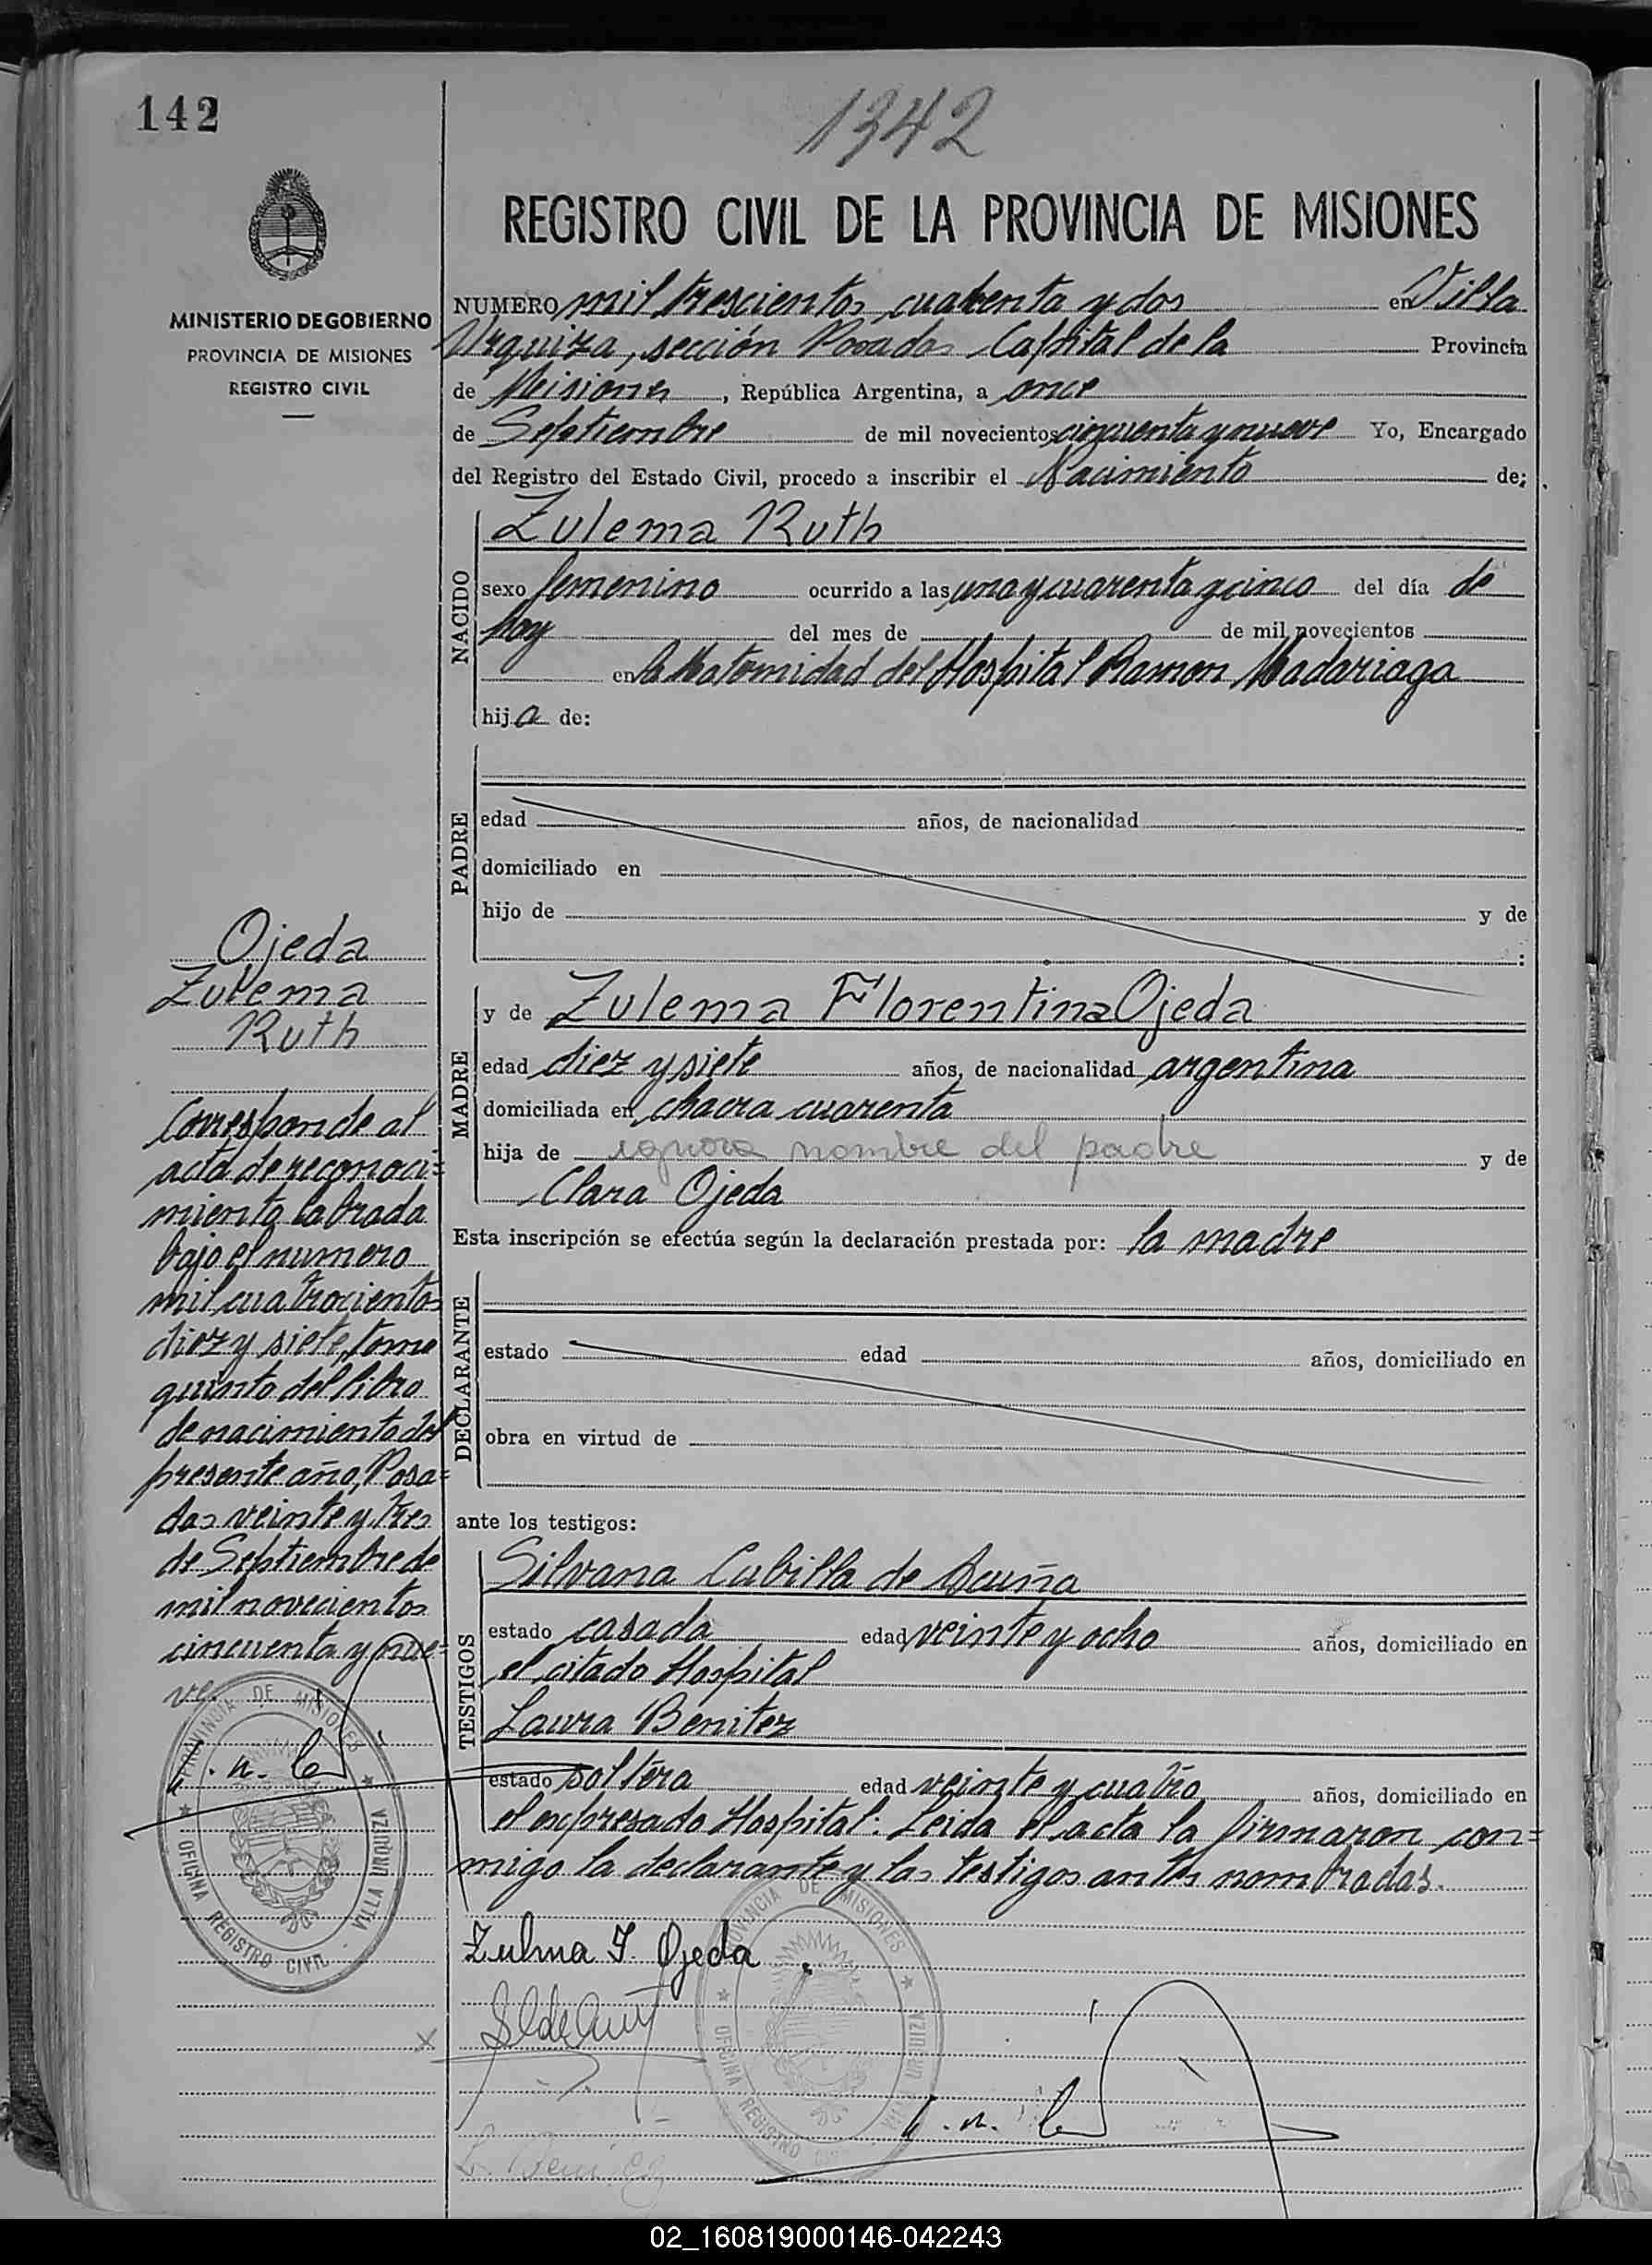 142
1342
REGISTRO CIVIL DE LA PROVINCIA DE MISIONES
MINISTERIO DE GOBIERNO
PROVINCIA DE MISIONES
REGISTRO CIVIL
NUMERO mil trescientos cuarenta y dos en Villa
Urquiza, sección Posadas Capital de la Provincia
de Misiones, República Argentina, a once
de Septiembre de mil novecientos cincuenta y nueve Yo, Encargado
del Registro del Estado Civil, procedo a inscribir el Nacimiento de;
NACIDO
Zulema Ruth
sexo femenino ocurrido a las una y cuarenta y cinco del día de
hoy del mes de de mil novecientos
en la Maternidad del Hospital Ramon Madariaga
hija de:
PADRE
edad años, de nacionalidad
domiciliado en
hijo de y de
:
MADRE
y de Zulema Florentina Ojeda
edad diez y siete años, de nacionalidad argentina
domiciliada en chacra cuarenta
hija de ignora nombre del padre y de
Clara Ojeda
Esta inscripción se efectúa según la declaración prestada por: la madre
DECLARANTE
estado edad años, domiciliado en
obra en virtud de
ante los testigos:
TESTIGOS
Silvana Cubilla de Acuña
estado casada edad veinte y ocho años, domiciliado en
el citado Hospital
Laura Benitez
estado soltera edad veinte y cuatro años, domiciliado en
el expresado Hospital. Leida el acta la firmaron con=
migo la declarante y las testigos antes nombradas.
Zulma F. Ojeda
L. Benitez
Ojeda
Zulema
Ruth
Corresponde al
acta de reconoci=
miento labrada
bajo el numero
mil cuatrocientos
diez y siete, tomo
quinto del libro
de nacimiento del
presente año, Posa=
das veinte y tres
de Septiembre de
mil novecientos
cincuenta y nue=
ve.
PROVINCIA DE MISIONES
OFICINA REGISTRO CIVIL
VILLA URQUIZA
PROVINCIA DE MISIONES
OFICINA REGISTRO
VILLA URQUIZA
02_160819000146-042243